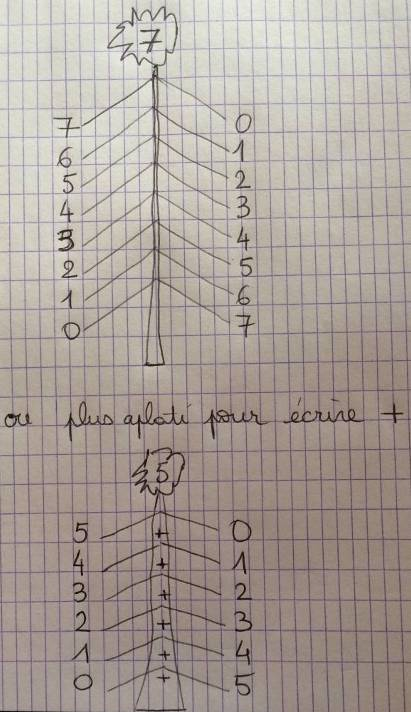 7
7 0
6 1
5 2
4 3
3 4
2 5
1 6
0 7
ou plus aplati pour écrire +
5
5 + 0
4 + 1
3 + 2
2 + 3
1 + 4
0 + 5